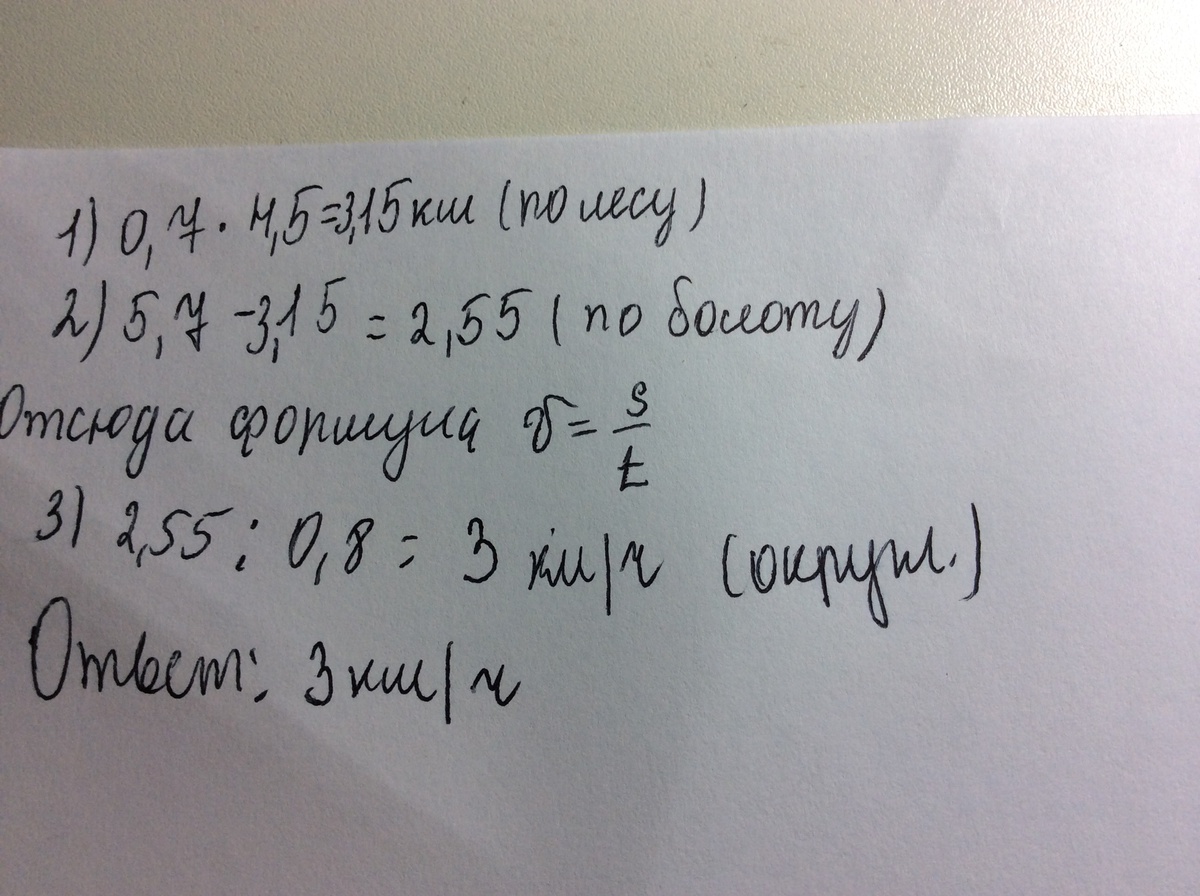 1) 0,7 · 4,5=3,15 км (по лесу)
2) 5,7 -3,15 = 2,55 (по болоту)
Отсюда формула v = s/t
3) 2,55 : 0,8 = 3 км/ч (округл.)
Ответ: 3 км/ч